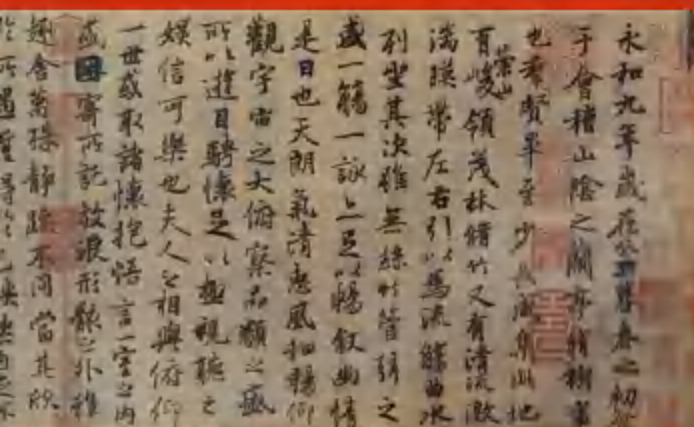 永和九年歲在癸丑暮春之初會
于會稽山陰之蘭亭脩稧事
也羣賢畢至少長咸集此地
有崇山峻領茂林脩竹又有清流激
湍暎帶左右引以為流觴曲水
列坐其次雖無絲竹管弦之
盛一觴一詠亦足以暢敘幽情
是日也天朗氣清惠風和暢仰
觀宇宙之大俯察品類之盛
所以遊目騁懷足以極視聽之
娛信可樂也夫人之相與俯仰
一世或取諸懷抱悟言一室之內
或因寄所託放浪形骸之外雖
趣舍萬殊靜躁不同當其欣
於所遇暫得於己快然自足不